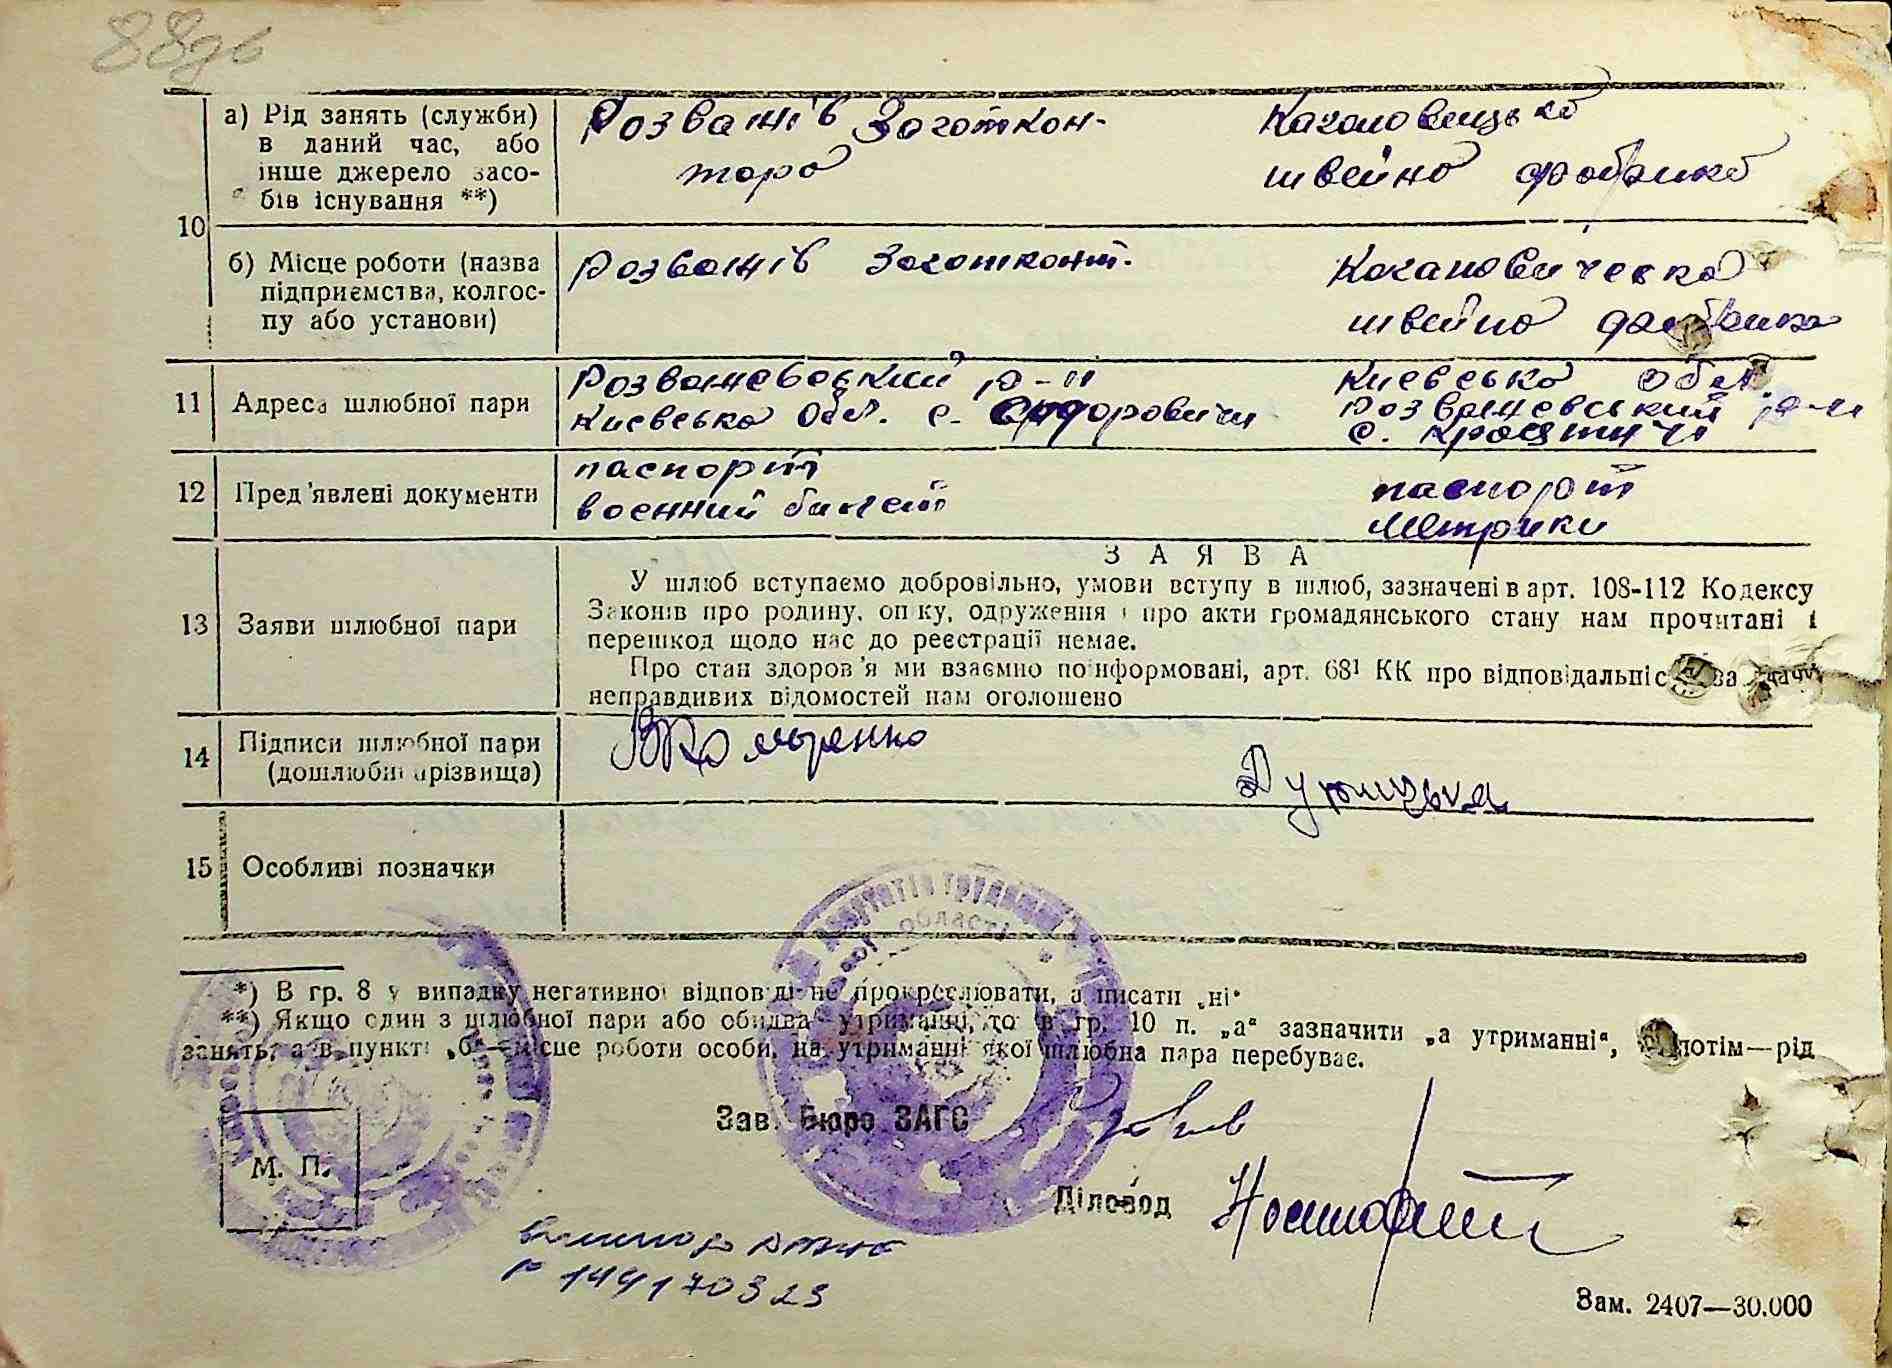 88
а) Рід занять (служби) в даний час, або інше джерело засобів існування **)
Розважів Заготкон-
тора
швейно фабрика
10
б) Місце роботи (назва підприємства, колгоспу або установи)
Розважів Заготконт.
швейно фабрика
11 Адреса шлюбної пари
Розважевський р-н
Киевсько Обл. с. Сидоровичи
Киевсько обл.
Розважевський р-н
с.
12 Пред'явлені документи
паспорт
военний билет
паспорт
Метрики
З А Я В А
13 Заяви шлюбної пари
У шлюб вступаємо добровільно, умови вступу в шлюб, зазначені в арт. 108-112 Кодексу
Законів про родину, опіку, одруження і про акти громадянського стану нам прочитані і
перешкод щодо нас до реєстрації немає.
Про стан здоров'я ми взаємно поінформовані, арт. 68¹ КК про відповідальніс за дачу
неправдивих відомостей нам оголошено
14 Підписи шлюбної пари
(дошлюбні прізвища)
15 Особливі позначки
депутатів трудящих
області
*) В гр. 8 у випадку негативної відповіді не прокреслювати, а писати „ні“
**) Якщо один з шлюбної пари або обидва утриманні, то в гр. 10 п. „а“ зазначити „а утриманні“, потім—рід
занять, а в пункті „б“—місце роботи особи, на утриманні якої шлюбна пара перебуває.
Зав. Бюро ЗАГС
М. П.
Діловод
Зам. 2407—30.000